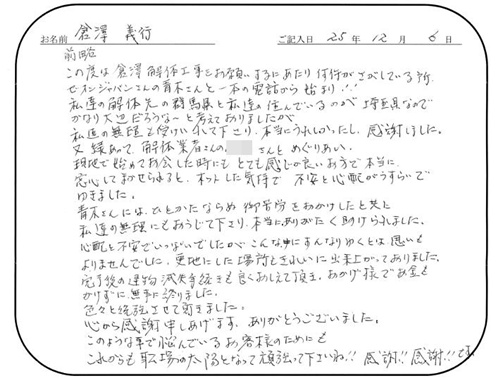 お名前 倉澤 義行 ご記入日 25年 12月 6日
前略
この度は倉澤解体工事をお願いするにあたり何件かさがしている所
セオンジャパンさんの青木さんと一本の電話から始まり!!
私達の解体先の群馬県と私達の住んでいるのが埼玉県なので
かなり大辺だろうな〜と考えてありましたが
私達の無理を受け入れて下さり、本当にうれしかったし、感謝しました。
又縁あって、解体業者さんの さんとめぐりあい、
現地で始めてお会した時にもとても感じの良いお方で本当に
安心してまかせられると、ホットした気持で 不安と心配がうすらいで
ゆきました。
青木さんには、ひとかたならぬ御苦労をおかけしたと共に
私達の無理にもおうじて下さり、本当にありがたく助けられました。
心配と不安でいっぱいでしたが こんな事にすんなりゆくとは、思いも
よりませんでした。更地にした場所ときれいに出来上がってありました。
完了後の建物滅失手続きも良くおしえて頂き、おかげ様でお金も
かけずに無事に終りました。
色々と勉強させて頂きました。
心から感謝申しあげます。ありがとうございました。
このような事で悩んでいるお客様のためにも
これからも職場の太陽となって頑張って下さいね!! 感謝!! 感謝!!です。